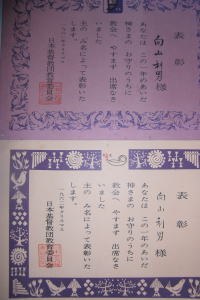 表彰
向山利男様
あなたは この一年のあいだ
神さまの お守りのうちに
教会へ やすまず 出席なさ
いました
主の み名によって表彰いた
します。
日本基督教団教育委員会
表彰
向山利男様
あなたは この一年のあいだ
神さまの お守りのうちに
教会へ やすまず 出席なさ
いました
主の み名によって表彰いた
します。
一九六二年クリスマス
日本基督教団教育委員会